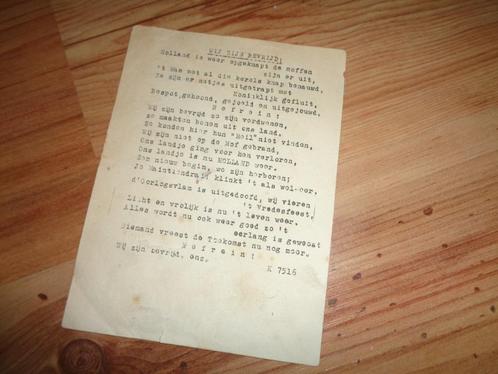 WIJ ZIJN BEVRIJD!
Holland is weer opgeknapt de moffen
zijn er uit,
't was wel al die kerels knap benauwd,
Ze zijn er netjes uitgetrapt met
Koninklijk gefluit,
Bespot, gehoond, gejoeld en uitgejouwd.
Refrein:
Wij zijn bevrijd zo zijn verdwenen,
ze maakten benen uit ons land.
Ze konden hier hun "Heil" niet vinden,
Wij zijn niet op de Mof gebrand,
Ons landje ging voor hen verloren,
Ons landje is nu HOLLAND weer.
Een nieuw begin, wo zijn herboren;
Je klinkt 't als weleer.
d'Oorlogsvlam is uitgedoofd, wij vieren
't Vredesfeest,
Licht en vrolijk is nu 't leven weer.
Alles wordt nu ook weer goed zo 't
eerlang is geweest
Niemand vreest de Toekomst nu nog meer.
Refrein:
Wij zijn bevrijd. enz.
K 7516